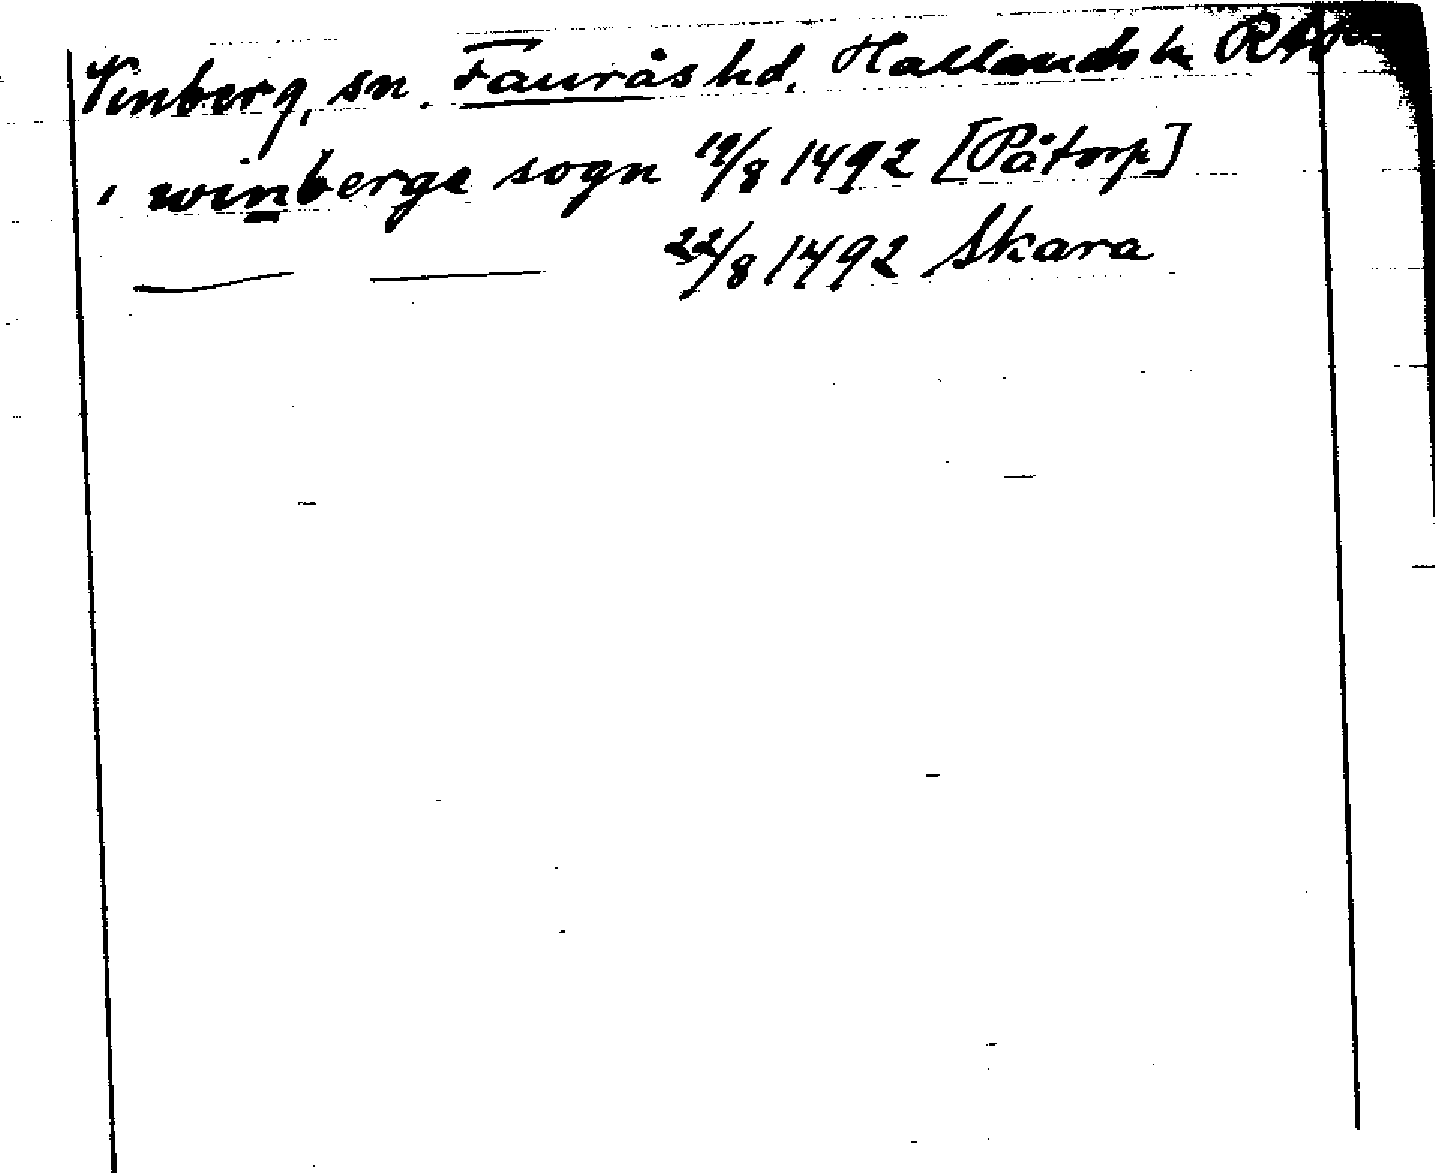 Vinberg, sn. Faurås hd. Hallands l. RAp
i winberge sogn 19/8 1492 [Påtorp]
— — 22/8 1492 Skara